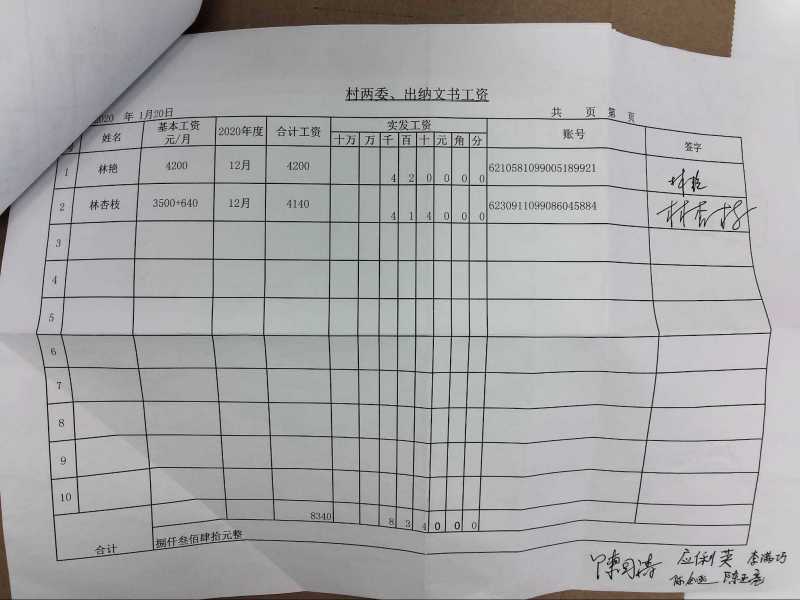 村两委、出纳文书工资
2020 年 1月20日 共 页 第 页
姓名 基本工资 元/月 2020年度 合计工资 实发工资 十万 万 千 百 十 元 角 分 账号 签字
1 林艳 4200 12月 4200 4 2 0 0 0 0 6210581099005189921 林艳
2 林杏枝 3500+640 12月 4140 4 1 4 0 0 0 6230911099086045884 林杏枝
3
4
5
6
7
8
9
10
8340 8 3 4 0 0 0
合计 捌仟叁佰肆拾元整
应俐英 李满巧